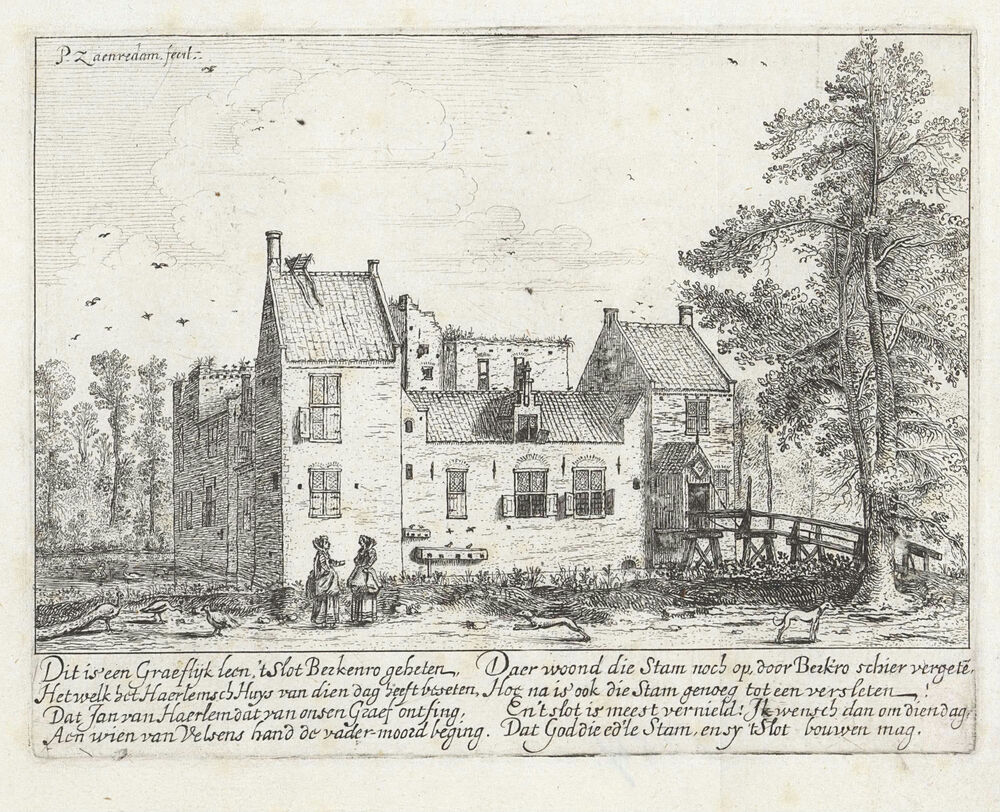 P. Zaenredam. fecit.
Dit is een Graeflijk leen, 't Slot Berkenro geheten,
Hetwelk het Haerlemsch Huys van dien dag heeft beseten,
Dat Jan van Haerlem dat van onsen Graef ontfing,
Aen wien van Velsens hand de vader-moord beging.
Daer woond die Stam noch op, door Berkro schier vergete,
Hoe na is ook die Stam genoeg tot een versleten!
En 't slot is meest vernield! Ik wensch dan om dien dag,
Dat God die ed'le Stam, en sy 't Slot bouwen mag.